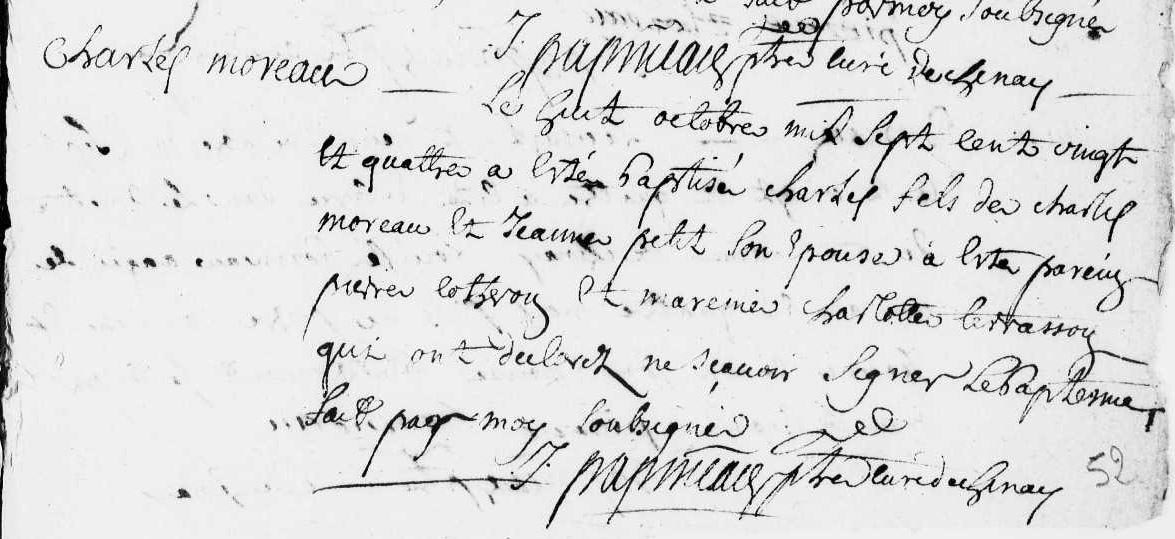 fait par moy soubsigné
Charles moreau
J papineau ptre curé de chenay
Le huit octobre mil sept cent vingt
et quattre a esté baptisé charles fils de charles
moreau et Jeanne petit son epouse à esté parein
pierre
et mareine charlotte terrasson
qui ont declarez ne sçavoir signer Le baptesme
fait par moy soubsigné
J papineau ptre curé de chenay
52